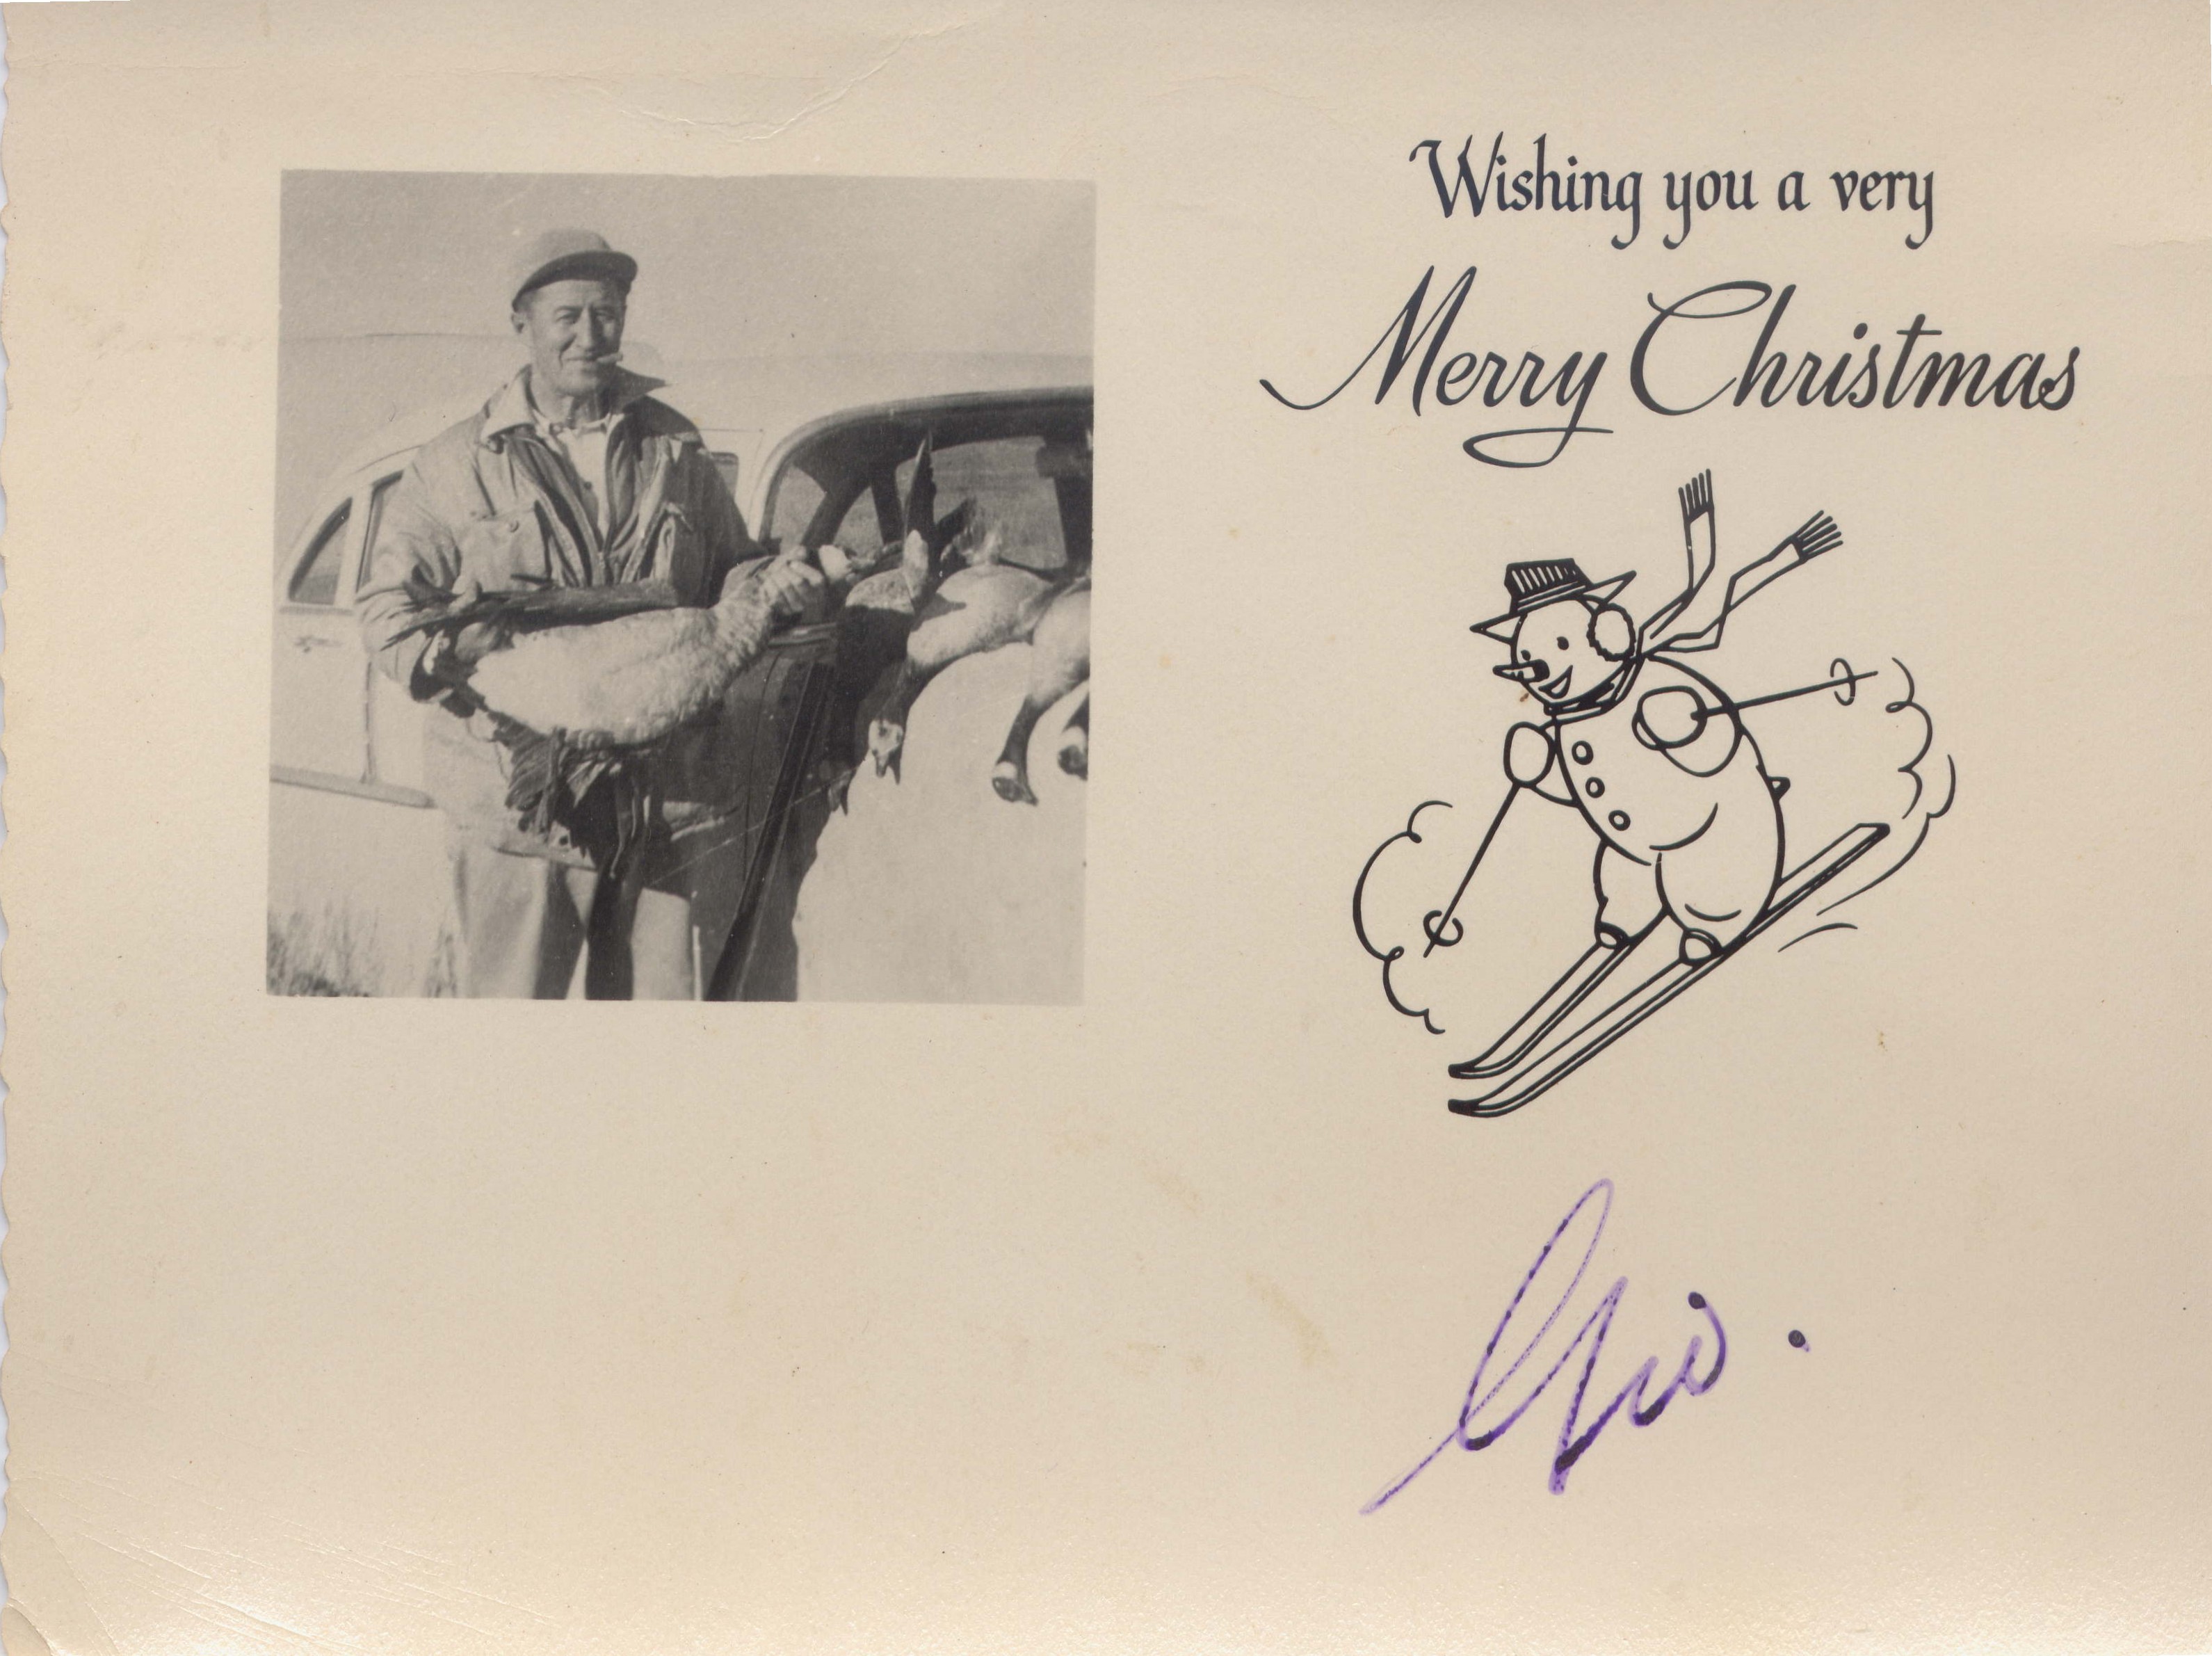 Wishing you a very
Merry Christmas